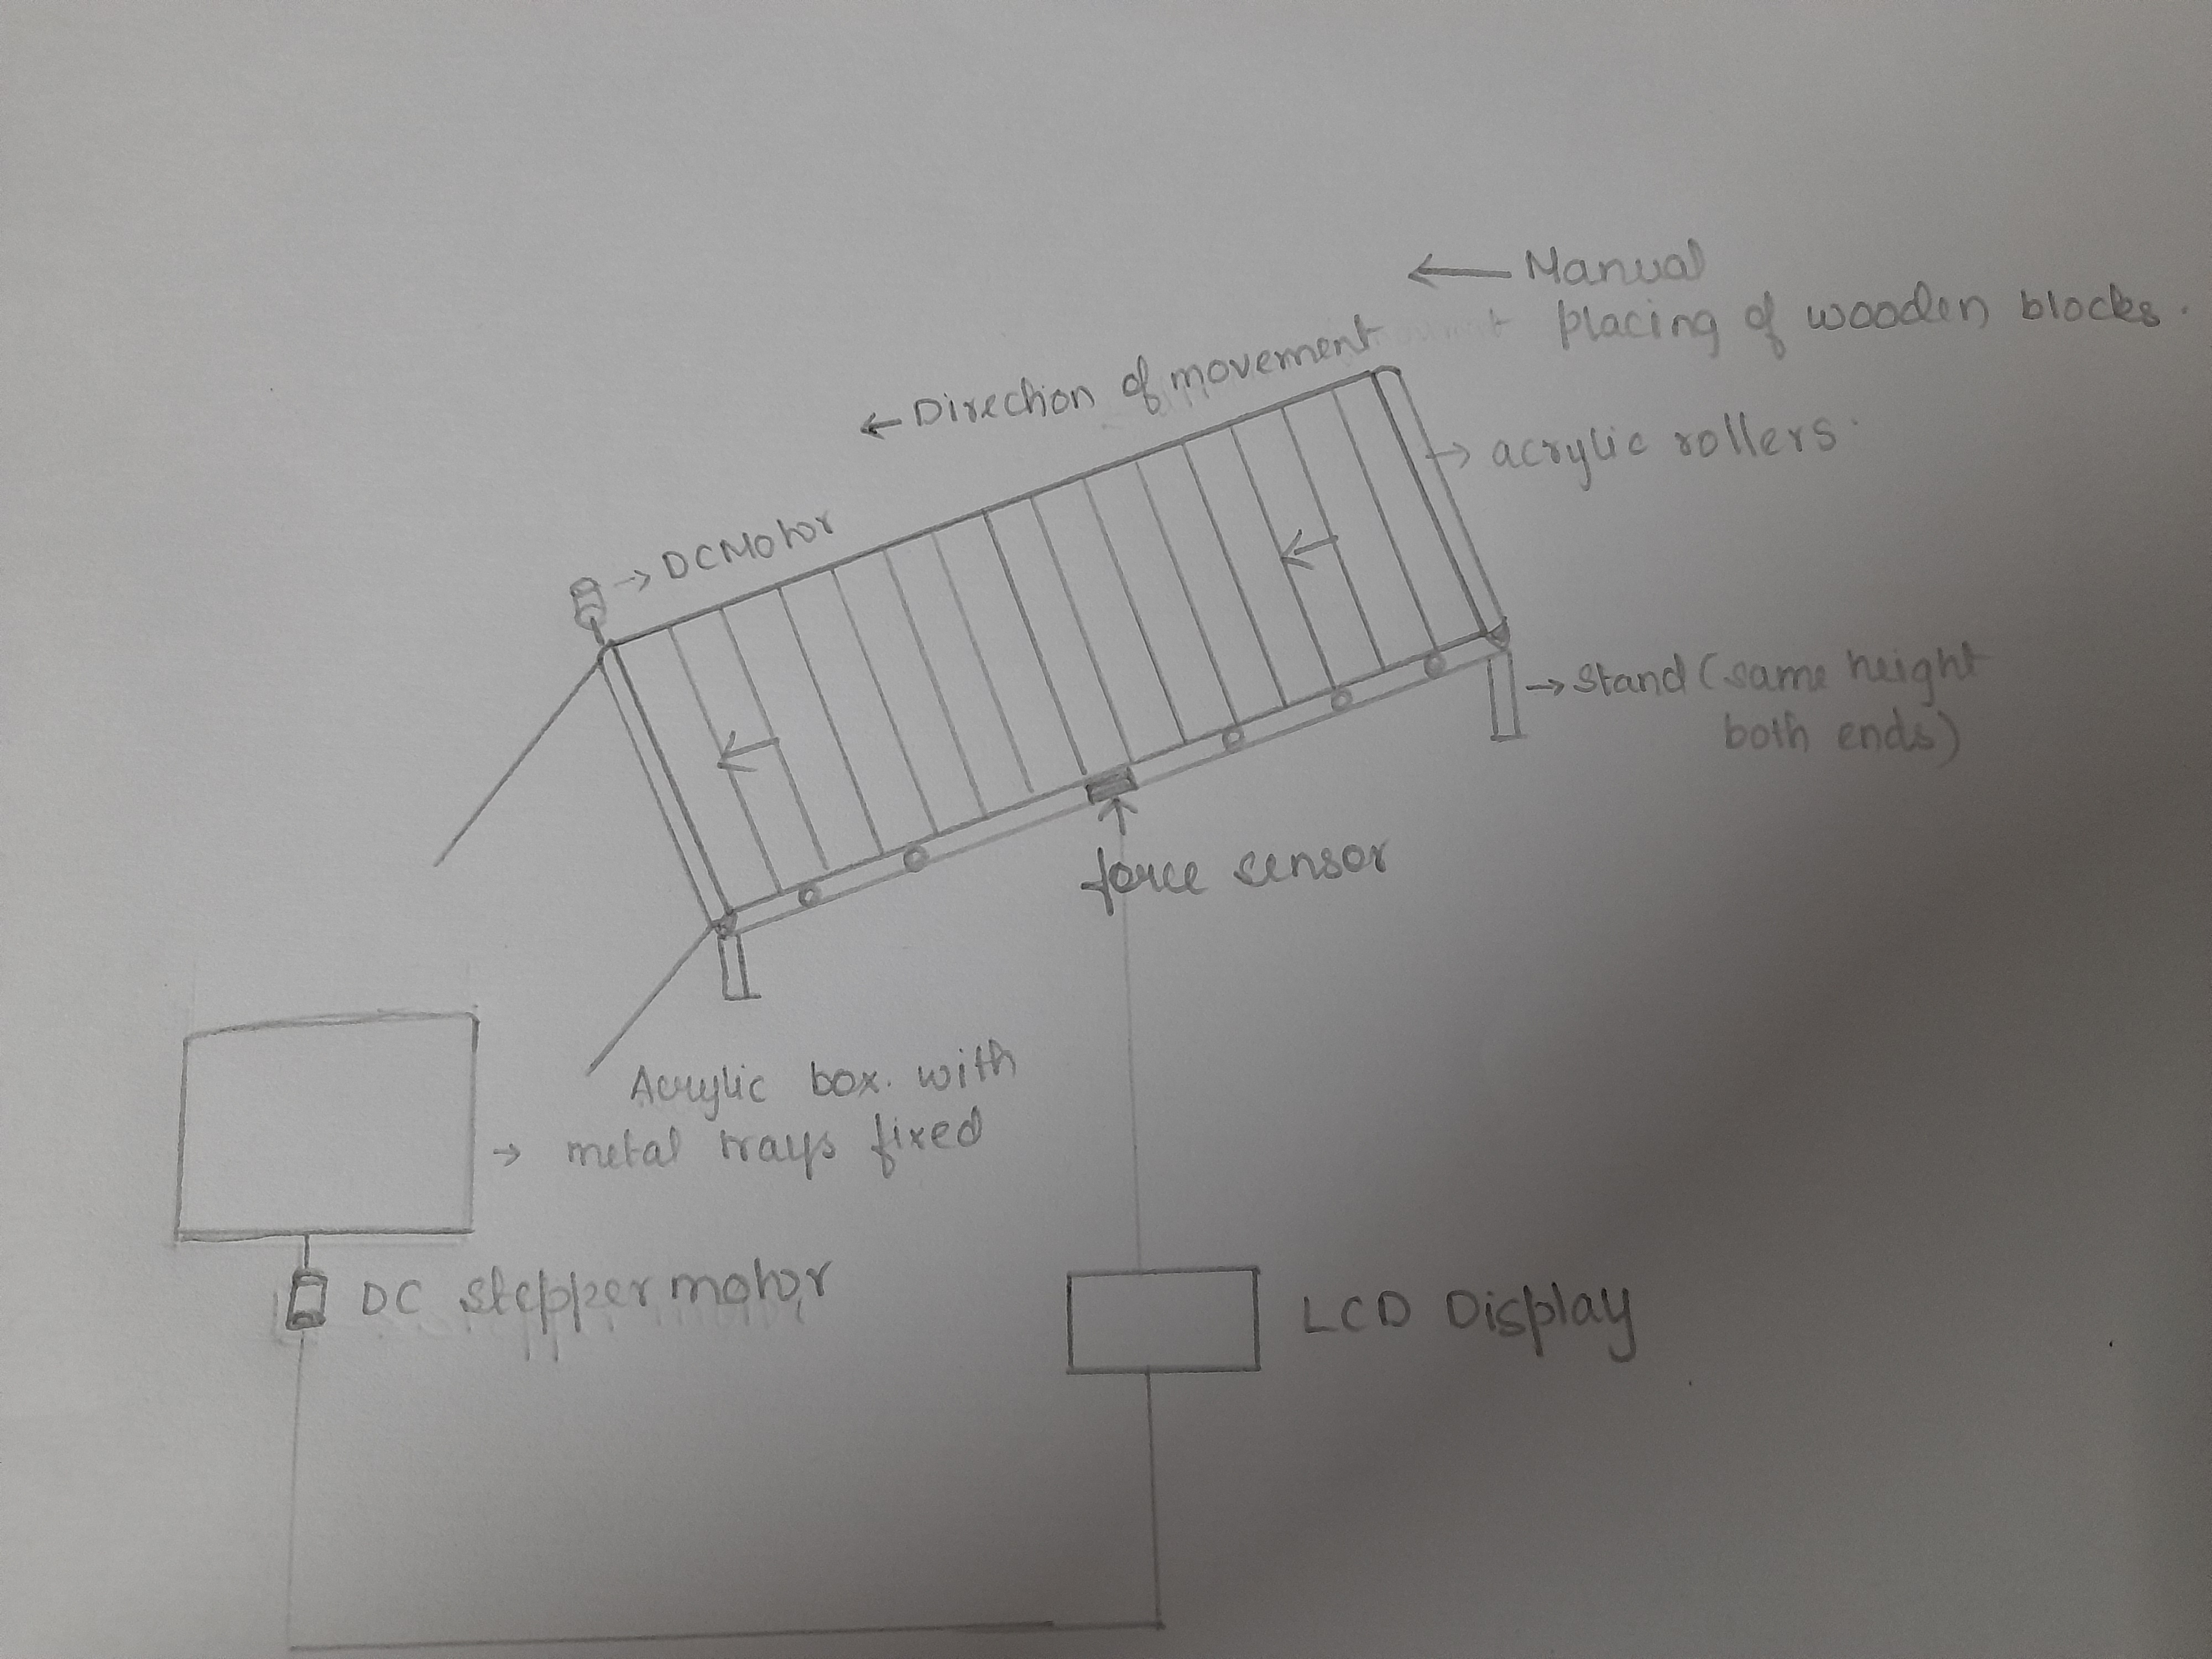 ← Manual
placing of wooden blocks.
← Direction of movement
→ DCMotor
→ acrylic rollers.
→ stand (same height
both ends)
force sensor
Acrylic box. with
→ metal trays fixed
DC stepper motor
LCD Display